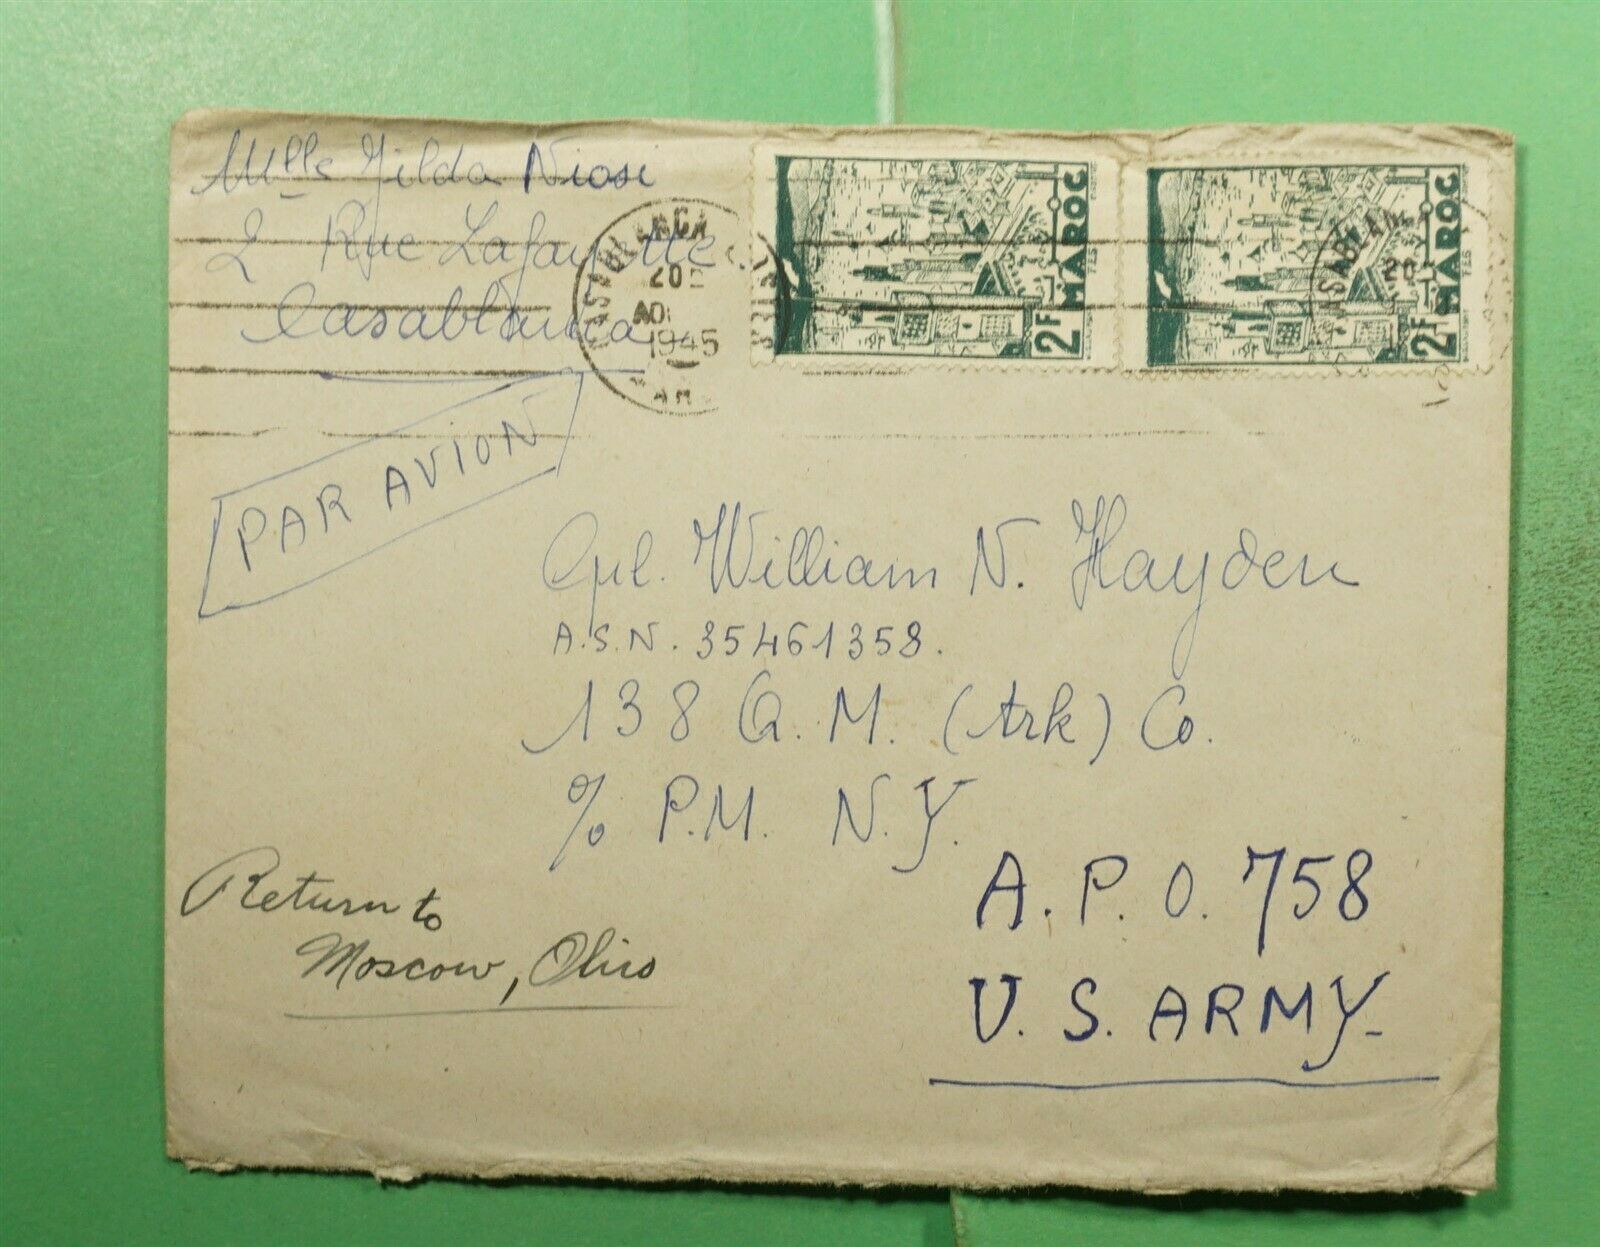 Mlle Gilda Niosi
2 Rue Lafayette
Casablanca
CASABLANCA
20
AOU
1945
MAROC
FES
2F
MAROC
FES
2F
CASABLANCA
20
PAR AVION
Cpl. William N. Hayden
A.S.N. 35461358.
138 Q.M. (trk) Co.
% P.M. N.Y.
A.P.O. 758
U.S. ARMY-
Return to
Moscow, Ohio